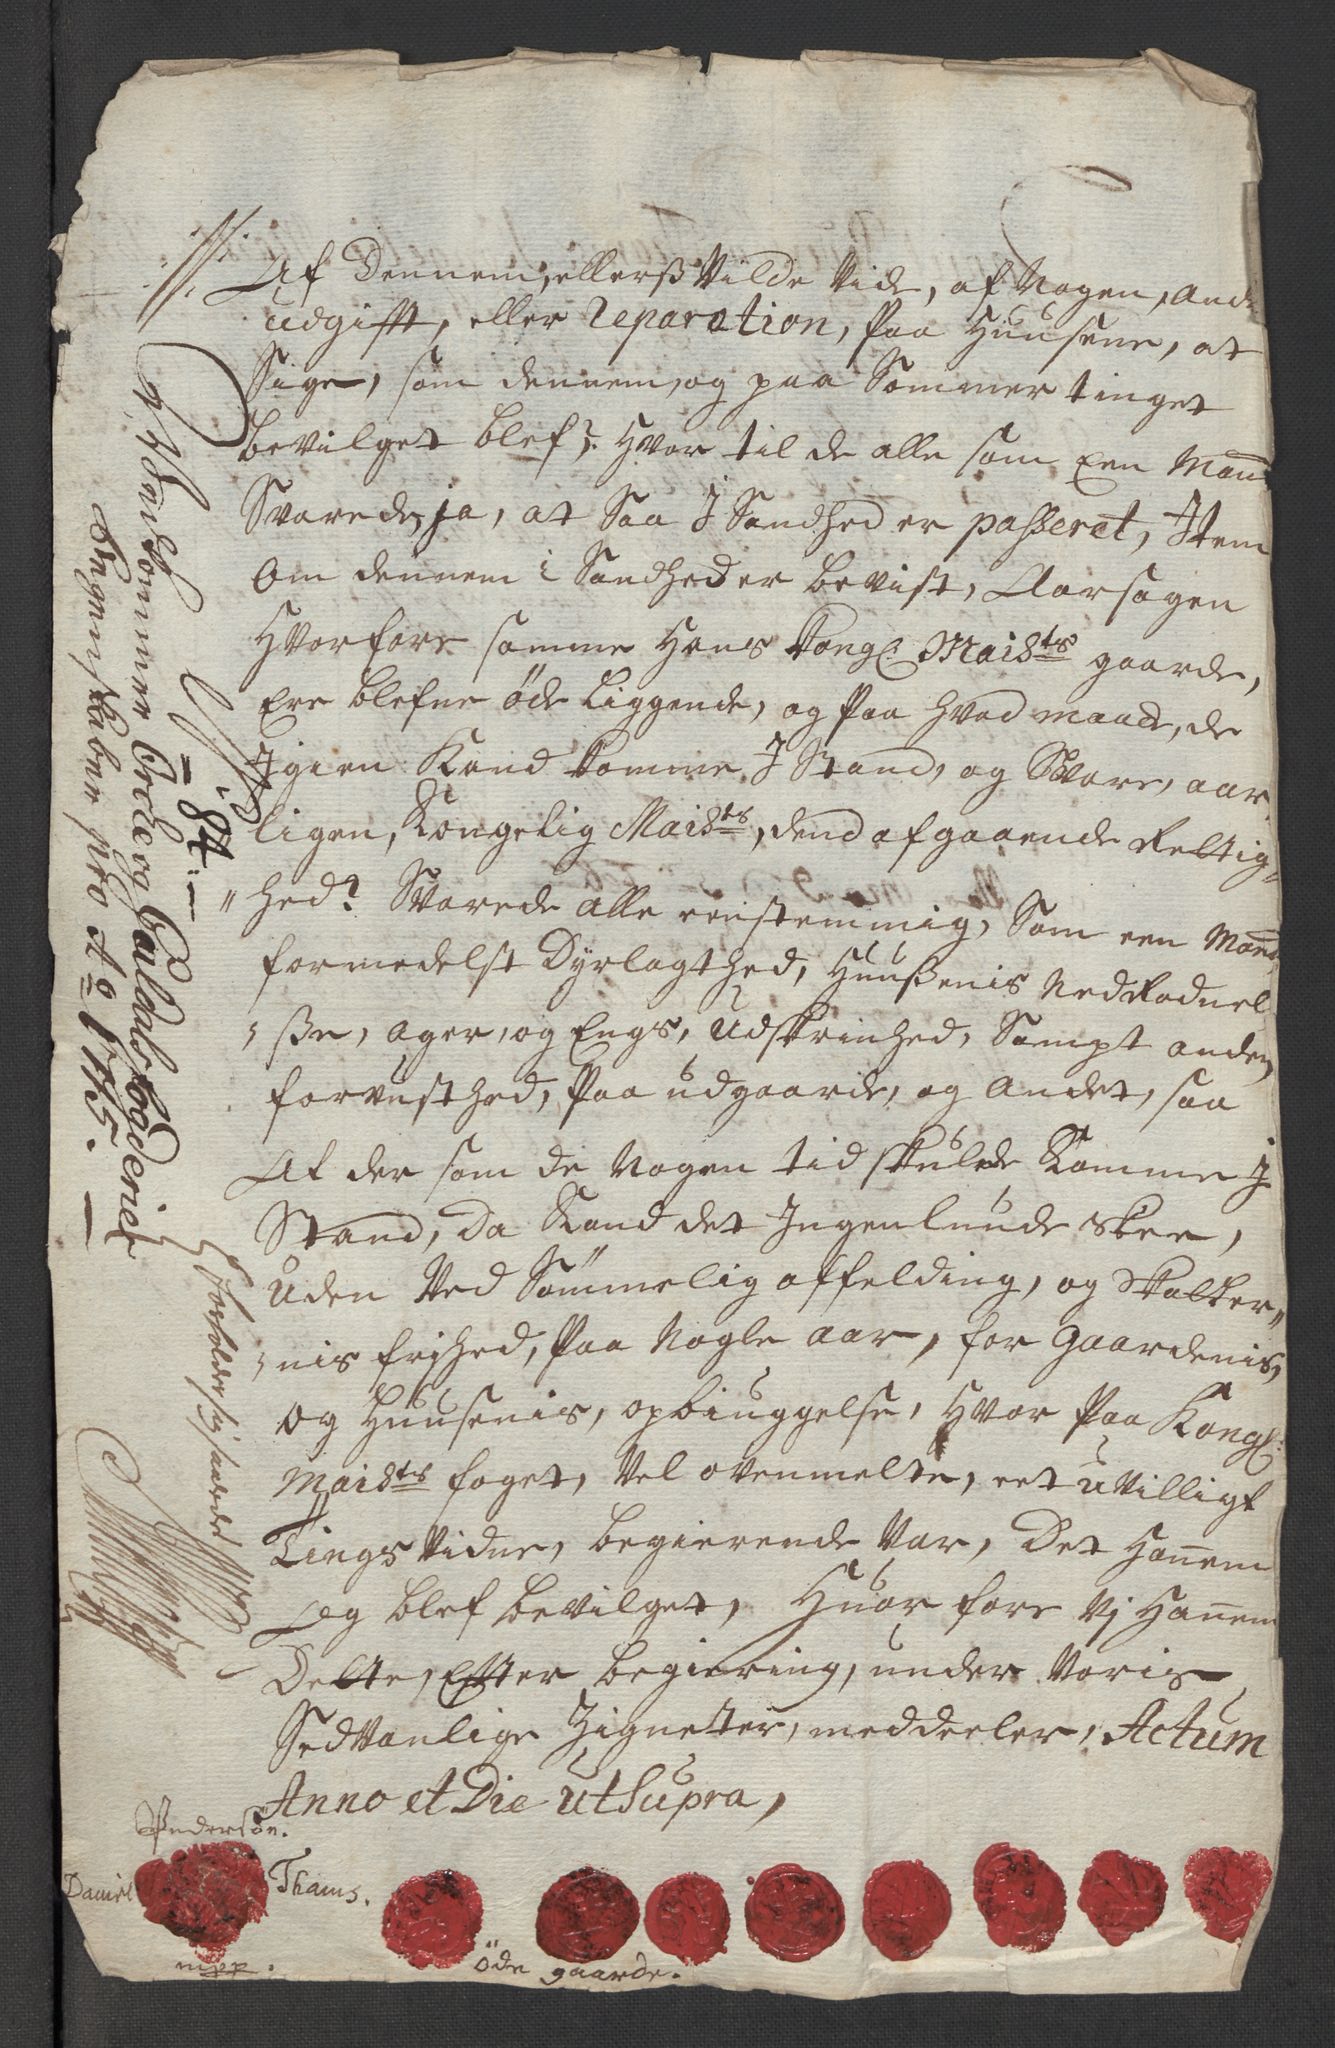 Af Dennem, ellerß Vilde Vide, af Nogen, And
udgifft, eller Reparation, Paa Huusene, at
Sige, som dennem, og paa Sommer tinget
bevilget blef?. Hvor til de alle som Een Mand
Svarede, ja, at Saa J Sandhed er passeret, Item
Om dennem i Sandhed er bevist, Aarsagen
Hvorfore samme Hans Kongl: Maidts gaarde,
Ere blefne öde Liggende, og Paa hvad maade, de
Igien Kand komme J Stand, og Svare, aar
ligen, Kongelig Maidts, dend afgaaende Rettig=
hed? Svarede alle eenstemmig, Som een Mand
formedelst Dyrlagthed, Huußenis Nedradnel
ße, ager, og Engs, Udskrinhed, Sampt anden
forvusthed, Paa udgaarde, og Andet, saa
At der som de Nogen tid skulde Komme J
Stand, Da Kand det Ingenlunde skee,
Uden Ved Sömmelig affelding, og Skatter=
nis frjhed, Paa Nogle aar, for Gaardenis,
og Huusenis, opbiuggelse, Hvor Paa Kongl:
Maidts foget, Vel ovenmelte, eet uVilligt
Tings Vidne, begierende Var, Det Hannem
og blef bevilget, Huor fore Vj Hannem
Dette, Efter begiering, under Voris
Sedvanlige Zignetter, meddeeler, Actum
Anno et Die ut Supra,
Andersøn.
Daniel
Thams.
mpp.
öde gaarde.
84
Nordmører Och og Romdals Fogderies
Regenskaber pro Ao 1715.
Forholder sig saaledes